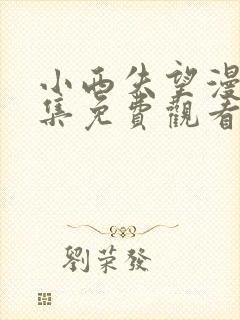 小西失望漫
集免費觀看
劉荣發